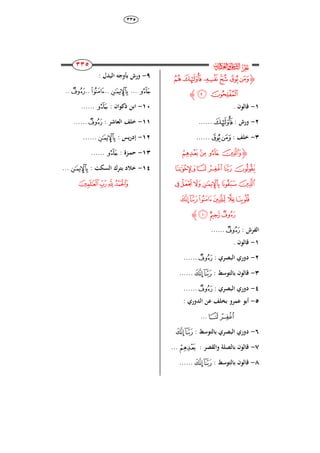 ٢٣٥
٢٣٥
﴿ وَمَن يُوقَ شُحَّ نَفْسِهِۦ فَأُوْلَٰٓئِكَ هُمُ
ٱلْمُفْلِحُونَ ﴾
١- قالون .
٢- ورش : فَأُوْلَٰٓئِكَ ......
٣- خلف : وَمَن يُوقَ ......
﴿ وَٱلَّذِينَ جَآءُو مِنۢ بَعْدِهِمْ
يَقُولُونَ رَبَّنَا ٱغْفِرْ لَنَا وَلِإِخْوَٰنِنَا
ٱلَّذِينَ سَبَقُونَا بِٱلْإِيمَٰنِ وَلَا تَجْعَلْ فِى
قُلُوبِنَا غِلًّا لِّلَّذِينَ ءَامَنُواْ رَبَّنَآ إِنَّكَ
رَءُوفٌ رَّحِيمٌ ١٠ ﴾
الفرش : رَءُوفٌ ......
١- قالون .
٢- دوري البصري : رَءُوفٌ ......
٣- قالون بالتوسط : رَبَّنَآ إِنَّكَ ......
٤- دوري البصري : رَءُوفٌ ......
٥- أبو عمرو بخلف عن الدوري :
ٱغْفِرْ لَنَا ...
٦- دوري البصري بالتوسط : رَبَّنَآ إِنَّكَ
٧- قالون بالصلة والقصر : بَعْدِهِمْ ...
٨- قالون بالتوسط : رَبَّنَآ إِنَّكَ ......
٩- ورش بأوجه البدل :
جَآءُو ... بِٱلْإِيمَٰنِ .. ءَامَنُواْ .. رَءُوفٌ ..
١٠- ابن ذكوان : جَآءُو ......
١١- خلف العاشر : رَءُوفٌ ......
١٢- إدريس : بِٱلْإِيمَٰنِ ......
١٣- حمزة : جَآءُو ......
١٤- خلاد بترك السكت : بِٱلْإِيمَٰنِ ...
وَٱلْحَمْدُ لِلَّهِ رَبِّ ٱلْعَٰلَمِينَ